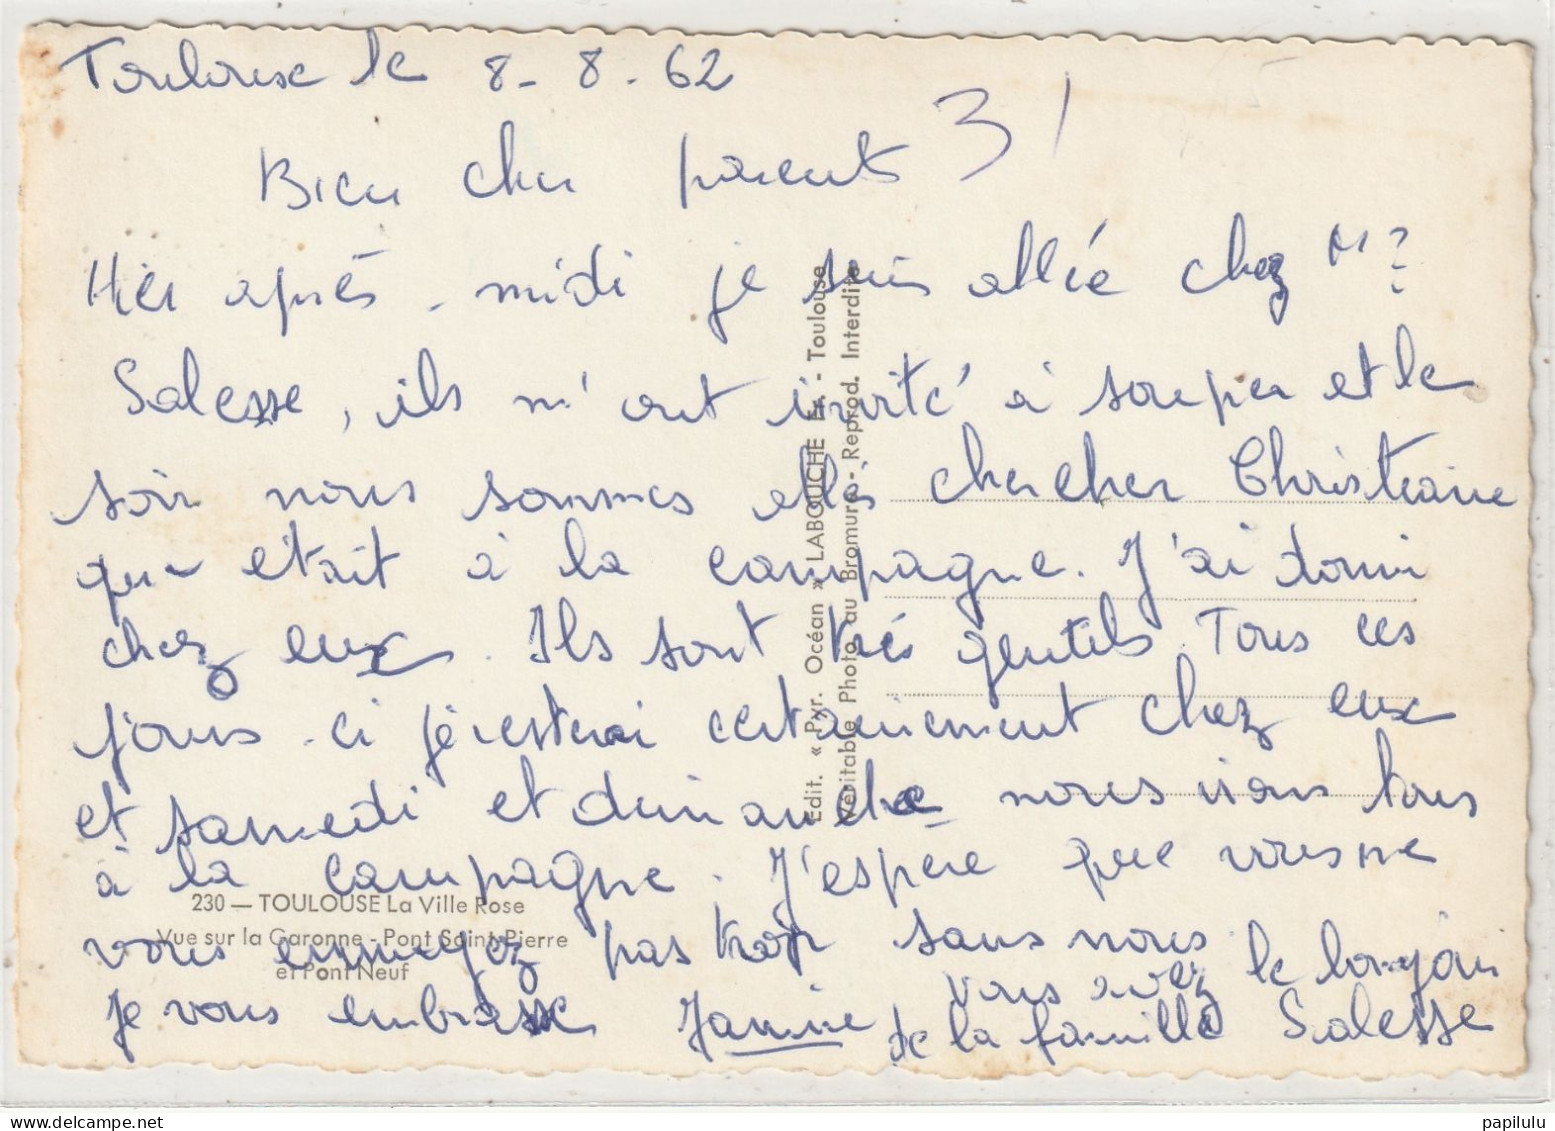 Toulouse le 8-8.62
3 /
Bien cher parents
Hier après-midi je suis allée chez Mr?
Salesse, ils m'ont invité à souper et le
soir nous sommes allés chercher Christiane
qui était à la campagne. J'ai dormi
chez eux. Ils sont très gentils. Tous ces
jours-ci je resterai certainement chez eux
et samedi et dimanche nous irons tous
à la campagne. J'espère que vous ne
vous ennuyez pas trop sans nous.
Je vous embrasse Janine
vous avez le bonjour
de la famille Salesse
Edit. « Pyr. Océan » LABOUCHE Fr. - Toulouse
Véritable Photo au Bromure - Reprod. Interdite
230 — TOULOUSE La Ville Rose
Vue sur la Garonne - Pont Saint-Pierre
et Pont Neuf
papilulu
www.delcampe.net